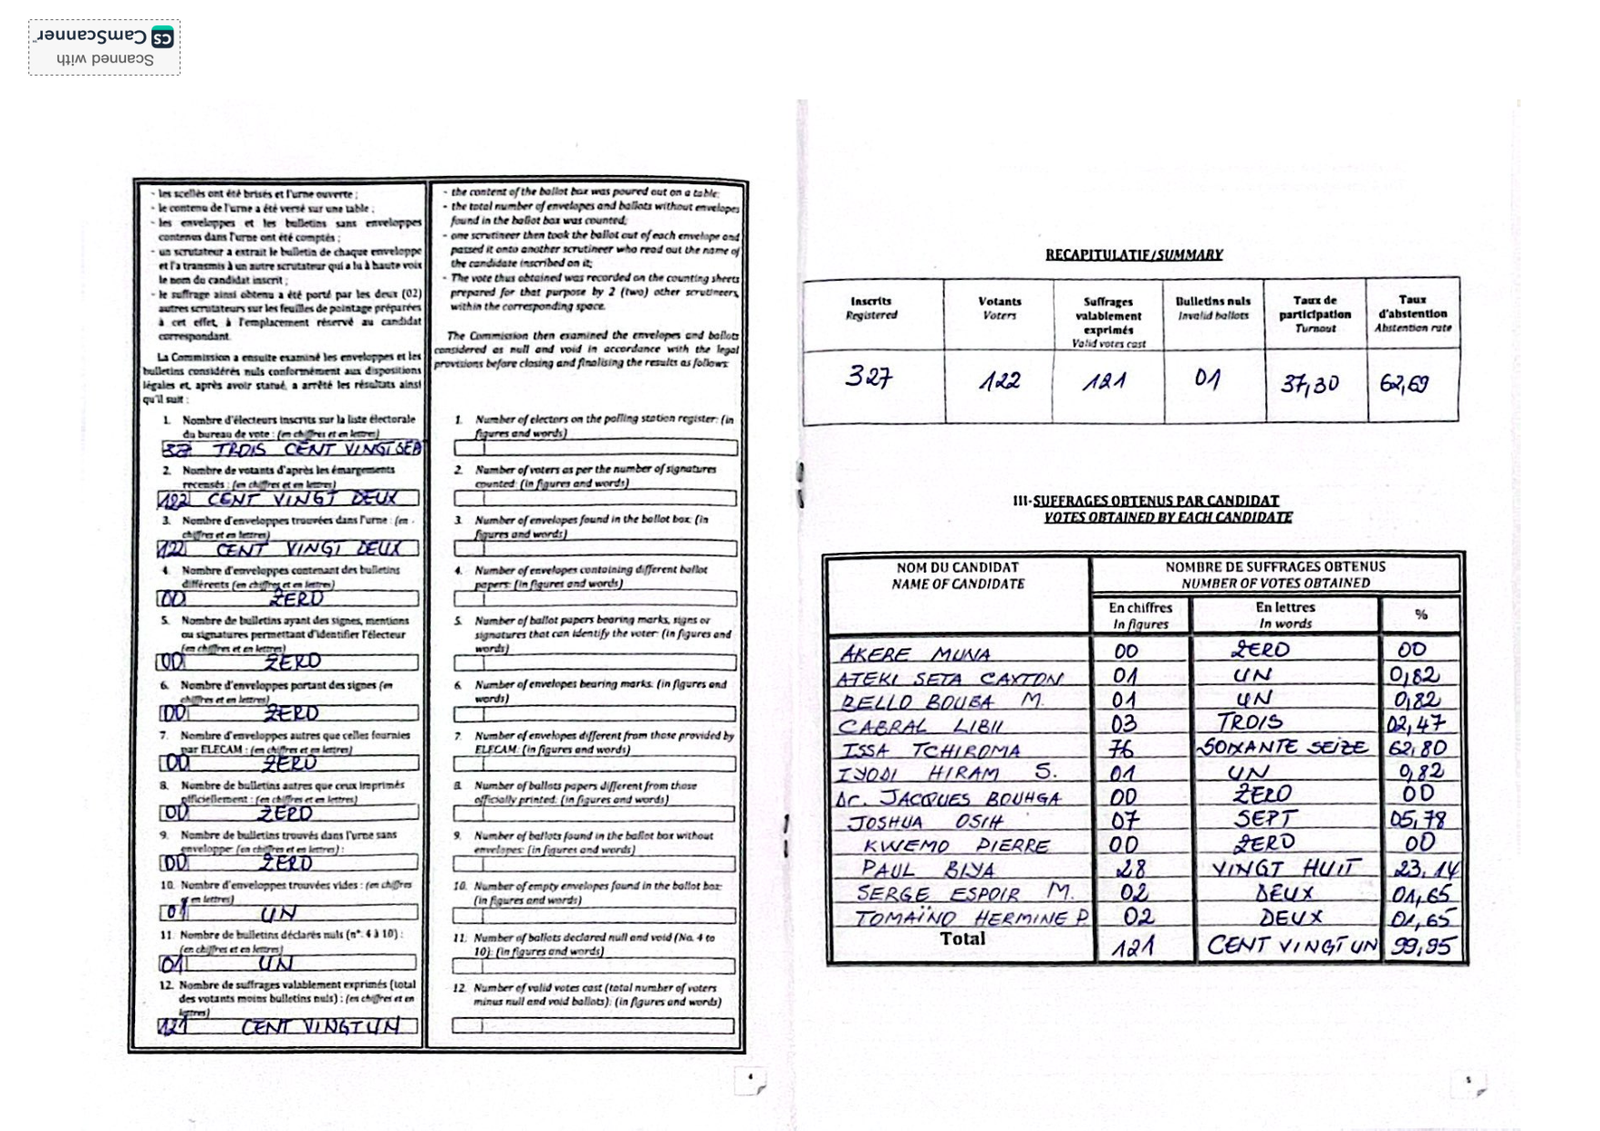 Scanned with
CS CamScanner
- les scellés ont été brisés et l'urne ouverte ;
- le contenu de l'urne a été versé sur une table ;
- les enveloppes et les bulletins sans enveloppes
contenus dans l'urne ont été comptés ;
- un scrutateur a extrait le bulletin de chaque enveloppe
et l'a transmis à un autre scrutateur qui a lu à haute voix
le nom du candidat inscrit ;
- le suffrage ainsi obtenu a été porté par les deux (02)
autres scrutateurs sur les feuilles de pointage préparées
à cet effet, à l'emplacement réservé au candidat
correspondant.
La Commission a ensuite examiné les enveloppes et les
bulletins considérés nuls conformément aux dispositions
légales et, après avoir statué, a arrêté les résultats ainsi
qu'il suit :
1. Nombre d'électeurs inscrits sur la liste électorale
du bureau de vote : (en chiffres et en lettres)
TROIS CENT VINGT SEP
2. Nombre de votants d'après les émargements
recensés : (en chiffres et en lettres)
122 CENT VINGT DEUX
3. Nombre d'enveloppes trouvées dans l'urne : (en
chiffres et en lettres)
122 CENT VINGT DEUX
4. Nombre d'enveloppes contenant des bulletins
différents (en chiffres et en lettres)
00 ZERO
5. Nombre de bulletins ayant des signes, mentions
ou signatures permettant d'identifier l'électeur
(en chiffres et en lettres)
00 ZERO
6. Nombre d'enveloppes portant des signes (en
chiffres et en lettres)
00 ZERO
7. Nombre d'enveloppes autres que celles fournies
par ELECAM : (en chiffres et en lettres)
00 ZERO
8. Nombre de bulletins autres que ceux imprimés
officiellement : (en chiffres et en lettres)
00 ZERO
9. Nombre de bulletins trouvés dans l'urne sans
enveloppe (en chiffres et en lettres) :
00 ZERO
10. Nombre d'enveloppes trouvées vides : (en chiffres
et en lettres)
01 UN
11. Nombre de bulletins déclarés nuls (n°. 4 à 10) :
(en chiffres et en lettres)
01 UN
12. Nombre de suffrages valablement exprimés (total
des votants moins bulletins nuls) : (en chiffres et en
lettres)
121 CENT VINGT UN
- the content of the ballot box was poured out on a table;
- the total number of envelopes and ballots without envelopes
found in the ballot box was counted;
- one scrutineer then took the ballot out of each envelope and
passed it onto another scrutineer who read out the name of
the candidate inscribed on it;
- The vote thus obtained was recorded on the counting sheets
prepared for that purpose by 2 (two) other scrutineers,
within the corresponding space.
The Commission then examined the envelopes and ballots
considered as null and void in accordance with the legal
provisions before closing and finalising the results as follows:
1. Number of electors on the polling station register: (in
figures and words)
2. Number of voters as per the number of signatures
counted: (in figures and words)
3. Number of envelopes found in the ballot box: (in
figures and words)
4. Number of envelopes containing different ballot
papers: (in figures and words)
5. Number of ballot papers bearing marks, signs or
signatures that can identify the voter: (in figures and
words)
6. Number of envelopes bearing marks: (in figures and
words)
7. Number of envelopes different from those provided by
ELECAM: (in figures and words)
8. Number of ballots papers different from those
officially printed: (in figures and words)
9. Number of ballots found in the ballot box without
envelopes: (in figures and words)
10. Number of empty envelopes found in the ballot box:
(in figures and words)
11. Number of ballots declared null and void (No. 4 to
10): (in figures and words)
12. Number of valid votes cast (total number of voters
minus null and void ballots): (in figures and words)
4
RECAPITULATIF/SUMMARY
Inscrits Registered Votants Voters Suffrages valablement exprimés Valid votes cast Bulletins nuls Invalid ballots Taux de participation Turnout Taux d'abstention Abstention rate
327 122 121 01 37,30 62,69
III-SUFFRAGES OBTENUS PAR CANDIDAT
VOTES OBTAINED BY EACH CANDIDATE
NOM DU CANDIDAT NOMBRE DE SUFFRAGES OBTENUS
NAME OF CANDIDATE NUMBER OF VOTES OBTAINED
En chiffres En lettres %
In figures In words
AKERE MUNA 00 ZERO 00
ATEKI SETA CAXTON 01 UN 0,82
BELLO BOUBA M. 01 UN 0,82
CABRAL LIBII 03 TROIS 02,47
ISSA TCHIROMA 76 SOIXANTE SEIZE 62,80
IYODI HIRAM S. 01 UN 0,82
Dc. JACQUES BOUHGA 00 ZERO 00
JOSHUA OSIH 07 SEPT 05,78
KWEMO PIERRE 00 ZERO 00
PAUL BIYA 28 VINGT HUIT 23,14
SERGE ESPOIR M. 02 DEUX 01,65
TOMAÏNO HERMINE P. 02 DEUX 01,65
Total 121 CENT VINGT UN 99,95
5